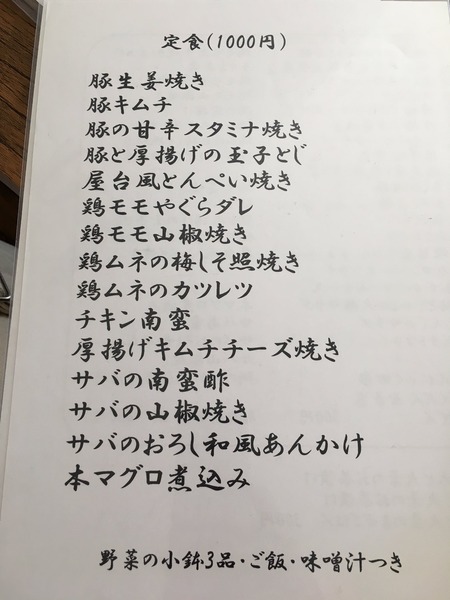 定食(1000円)
豚生姜焼き
豚キムチ
豚の甘辛スタミナ焼き
豚と厚揚げの玉子とじ
屋台風とんぺい焼き
鶏モモやぐらダレ
鶏モモ山椒焼き
鶏ムネの梅しそ照焼き
鶏ムネのカツレツ
チキン南蛮
厚揚げキムチチーズ焼き
サバの南蛮酢
サバの山椒焼き
サバのおろし和風あんかけ
本マグロ煮込み
野菜の小鉢3品・ご飯・味噌汁つき